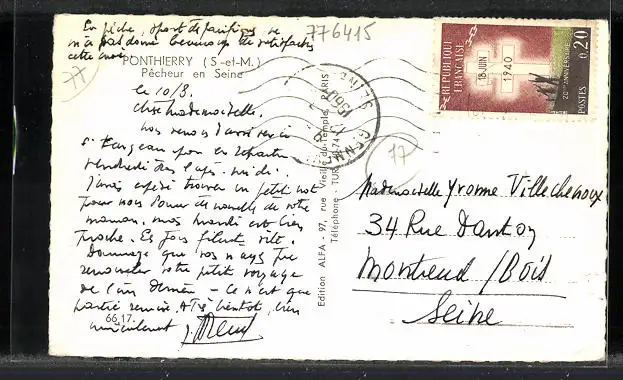 En pêche, sport de pacifiques, ne
m'a pas donné beaucoup de satisfactions
cette année
776415
77
PONTHIERRY (S-et-M.)
Pêcheur en Seine
Le 10/8.
Chère Mademoiselle,
nous venons d'arriver ici
vendredi dans l'après-midi.
J'avais espéré trouver un petit mot
pour nous donner de nouvelles de votre
maman, mais mardi est bien
proche. Les jours filent vite.
Dommage que vous n'ayez pu
renouveler votre petit voyage
de l'an dernier - Ce n'est que
partie remise. A très bientôt, bien
amicalement
66.17.
Edition ALFA - 97, rue Vieille-du-Temple, PARIS
Téléphone - TUR
1960
77
REPUBLIQUE
FRANÇAISE
18 JUIN
1940
0,20
20me ANNIVERSAIRE
POSTES
Mademoiselle Yvonne Villechenoux
34 Rue Danton
Montreuil / Bois
Seine